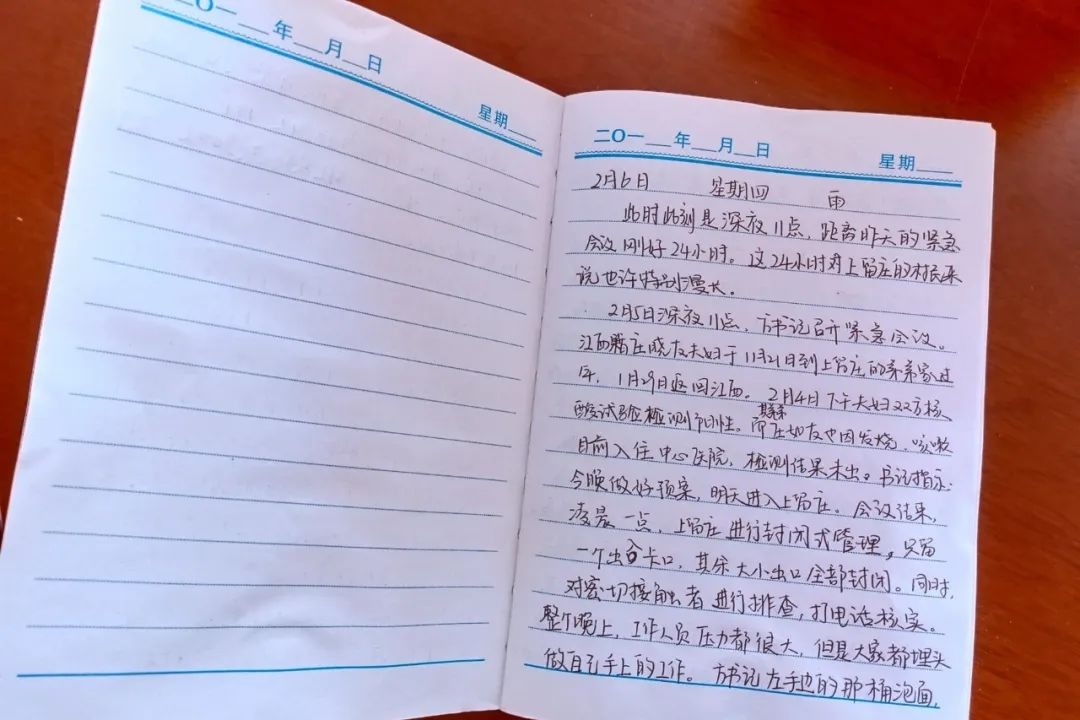 二〇一 年 月 日
星期
二〇一 年 月 日 星期
2月6日 星期四 雨
此时此刻是深夜11点，距离昨天的紧急
会议刚好24小时。这24小时对上留庄的村民来
说也许特别漫长。
2月5日深夜11点，方书记召开紧急会议。
江西籍庄晓友夫妇于11月21日到上留庄的弟弟家过
年，1月29日返回江西。2月4日下午夫妇双方核
酸试验检测中阳性。而庄如友也因发烧、咳嗽
目前入住中心医院，检测结果未出。书记指示：
今晚做好预案，明天进入上留庄。会议结束，
凌晨一点，上留庄进行封闭式管理，只留
一个出入卡口，其余大小出口全部封闭。同时，
对密切接触者进行排查，打电话核实。
整个晚上，工作人员压力都很大，但是大家都埋头
做自己手上的工作。方书记左手边的那桶泡面，